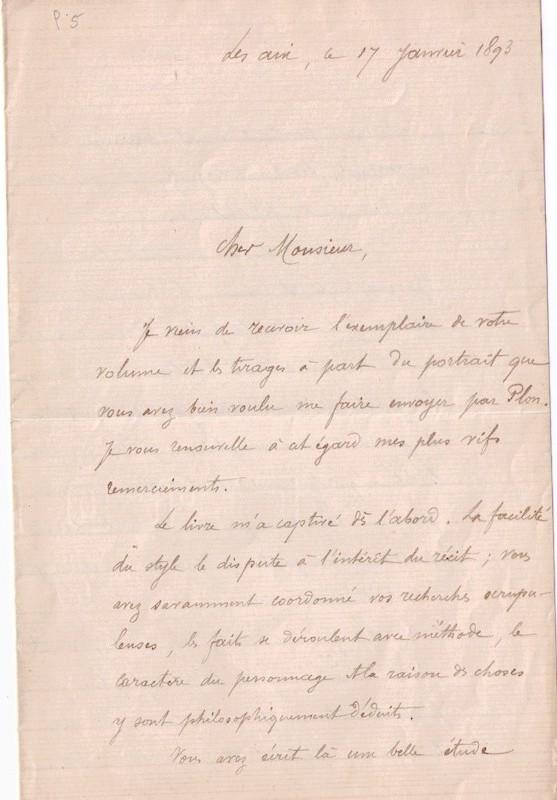 P. 5
Les aix, le 17 Janvier 1893
Cher Monsieur,
Je viens de recevoir l'exemplaire de votre
volume et les tirages à part du portrait que
vous avez bien voulu me faire envoyer par Plon.
Je vous renouvelle à cet égard mes plus vifs
remerciements.
Le livre m'a captivé dès l'abord. La facilité
du style le dispute à l'intérêt du récit ; vous
avez savamment coordonné vos recherches scrupu-
leuses, les faits se déroulent avec méthode, le
caractère du personnage et la raison des choses
y sont philosophiquement déduits.
Vous avez écrit là une belle étude